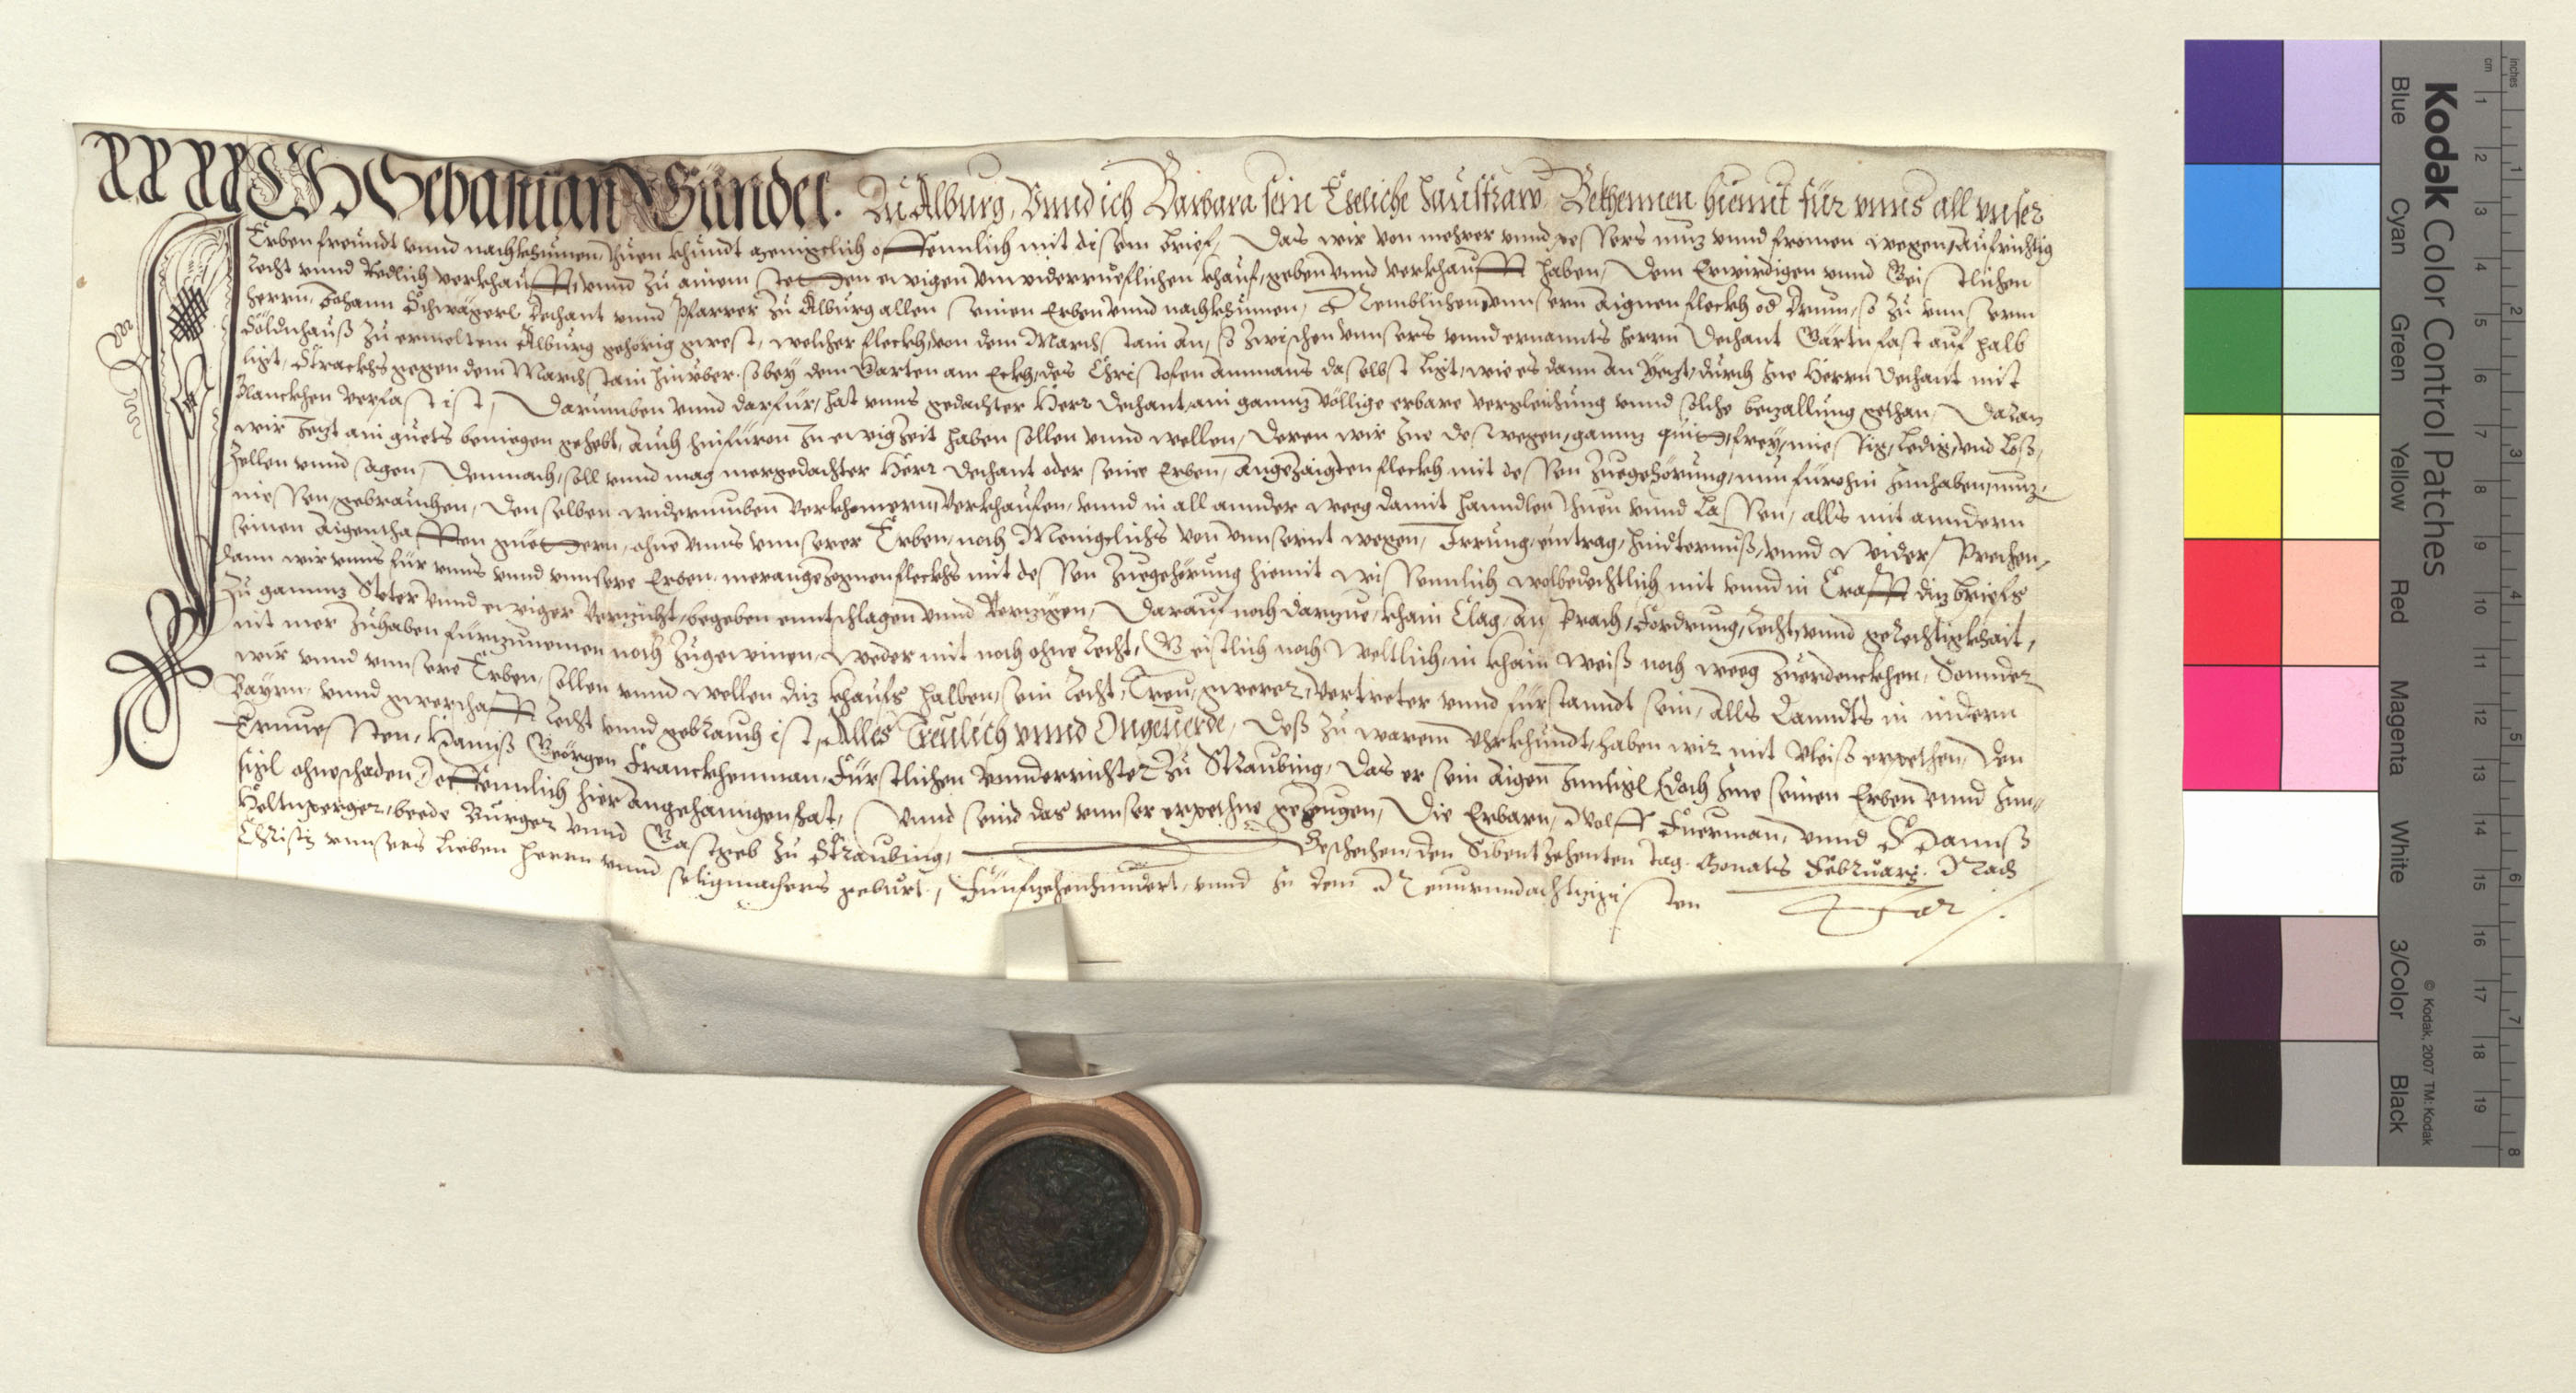 ICH Sebastian Gündel. Zu Alburg, Vnnd ich Barbara sein Eeliche Hausfraw Bekhennen hiemit für vnns all vnser
Erben freundt vnnd nachkhumen, Thuen khundt menigclich offennlich mit disem brief, Das wir von mehrer vnnd pessers nuz vnnd fromen wegen, Aufrichtig
Recht vnnd Redlich verkhaufft, vnnd zu ainem stetten ewigen vnwiderrueflichen khauf, geben vnnd verkhaufft haben, Dem Erwirdigen vnnd Geistlichen
herrn, Johann Schwägerl Dechant vnnd Pfarrer zu Alburg allen seinen Erben vnnd nachkhumen, Nemblichen vnnsern Aignen fleckh od Drum, so zu vnnserm
Söldnhauß zu ermeltem Alburg gehörig gwest, welcher fleckh, von dem Marchstain an, so zwischen vnnsers vnnd ernannts herrn Dechant Gärtn fast auf halb
ligt, Strackhs gegen dem Marchstain hinüber, so bey dem Garten am Eckh, des Christofen Ammans daselbst ligt, wie es dann an Yezt, durch Ine Herrn Dechant mit
Planckhen verfast ist, Darumben vnnd darfür, hat vnns gedachter Herr Dechant, ain gannz völlige erbare vergleichung vnnd solche bezallung gethan, Daran
wir Jezt ain guets beniegen gehebt, auch hinfüron zu ewig Zeit haben sollen vnnd wellen, Deren wir Ine deswegen, gannz quitt, frey, miessig, Ledig, vnd Loß,
Zellen vnnd sagen, Demnach, soll vnnd mag mergedachter Herr Dechant oder seine Erben, Angezaigten fleckh mit dessen Zuegehörung, nun fürohin Innhaben, nuz,
niessen, gebrauchen, Den selben widerumben verkhomern, Verkhaufen, vnnd in all annder weeg damit hanndlen, thuen vnnd Lassen, alls mit anndern
seinen Aigenthafften güettern, ohne vnns vnnserer Erben, noch Menigclichs von vnnsernt wegen, Irrung, eintrag, hindternuß, vnnd widersprechen,
Dann wir vnns für vnns vnnd vnnsere Erben, merangezognen fleckhs mit dessen Zuegehörung hiemit wissennlich wolbedechtlich mit vnnd in Crafft diz briefs
Zu gannz Steter vnnd ewiger Verzicht, begeben enntschlagen vnnd Verzigen, Darauf noch darzue, khain Clag, Ansprach, Fordrung, Recht, vnnd gerechtigkhait,
nit mer zuhaben fürzunemen noch zugewinen, weder mit noch ohne Recht, Geistlich noch weltlich, in khain weiß noch weeg zuerdenckhen, Sonnder
wir vnnd vnnsere Erben, sollen vnnd wellen diz khaufs halben, sein Recht, Treu, gwerer, Vertreter vnnd fürstanndt sein, alls Lanndts in nidern
Bayrn, vnnd gwerschafft Recht vnnd gebrauch ist, Alles Treulich vnnd Ongeuerde, Deß zu warem Vhrkhundt, haben wir mit vleiß erpethen, Den
Ernuessten, Hannß Geörgen Franckhenman, Fürstlichen vnnderrichter zu Straubing, Das er sein Aigen Innsigl, doch Ime seinen Erben vnnd Inn-
sigl ohneschaden, Offennlich hier angehanngen hat, Vnnd seind das vnnser erpethne gezeugen, Die Erbarn, Wolff Fuerman, vnnd Hannß
Heltnperger, beede Burger vnnd Gastgeb zu Straubing, Geschechen, den Sibentzehenten tag Monats Februarj. Nach
Christj vnnsers Lieben herrn vnnd seligmachers geburt, Fünfzehenhundert, vnnd In dem Neunundachtzigisten Jar.
Kodak Color Control Patches
Blue Cyan Green Yellow Red Magenta White 3/Color Black
© Kodak, 2007 TM: Kodak
inches 1 2 3 4 5 6 7 8
cm 1 2 3 4 5 6 7 8 9 10 11 12 13 14 15 16 17 18 19